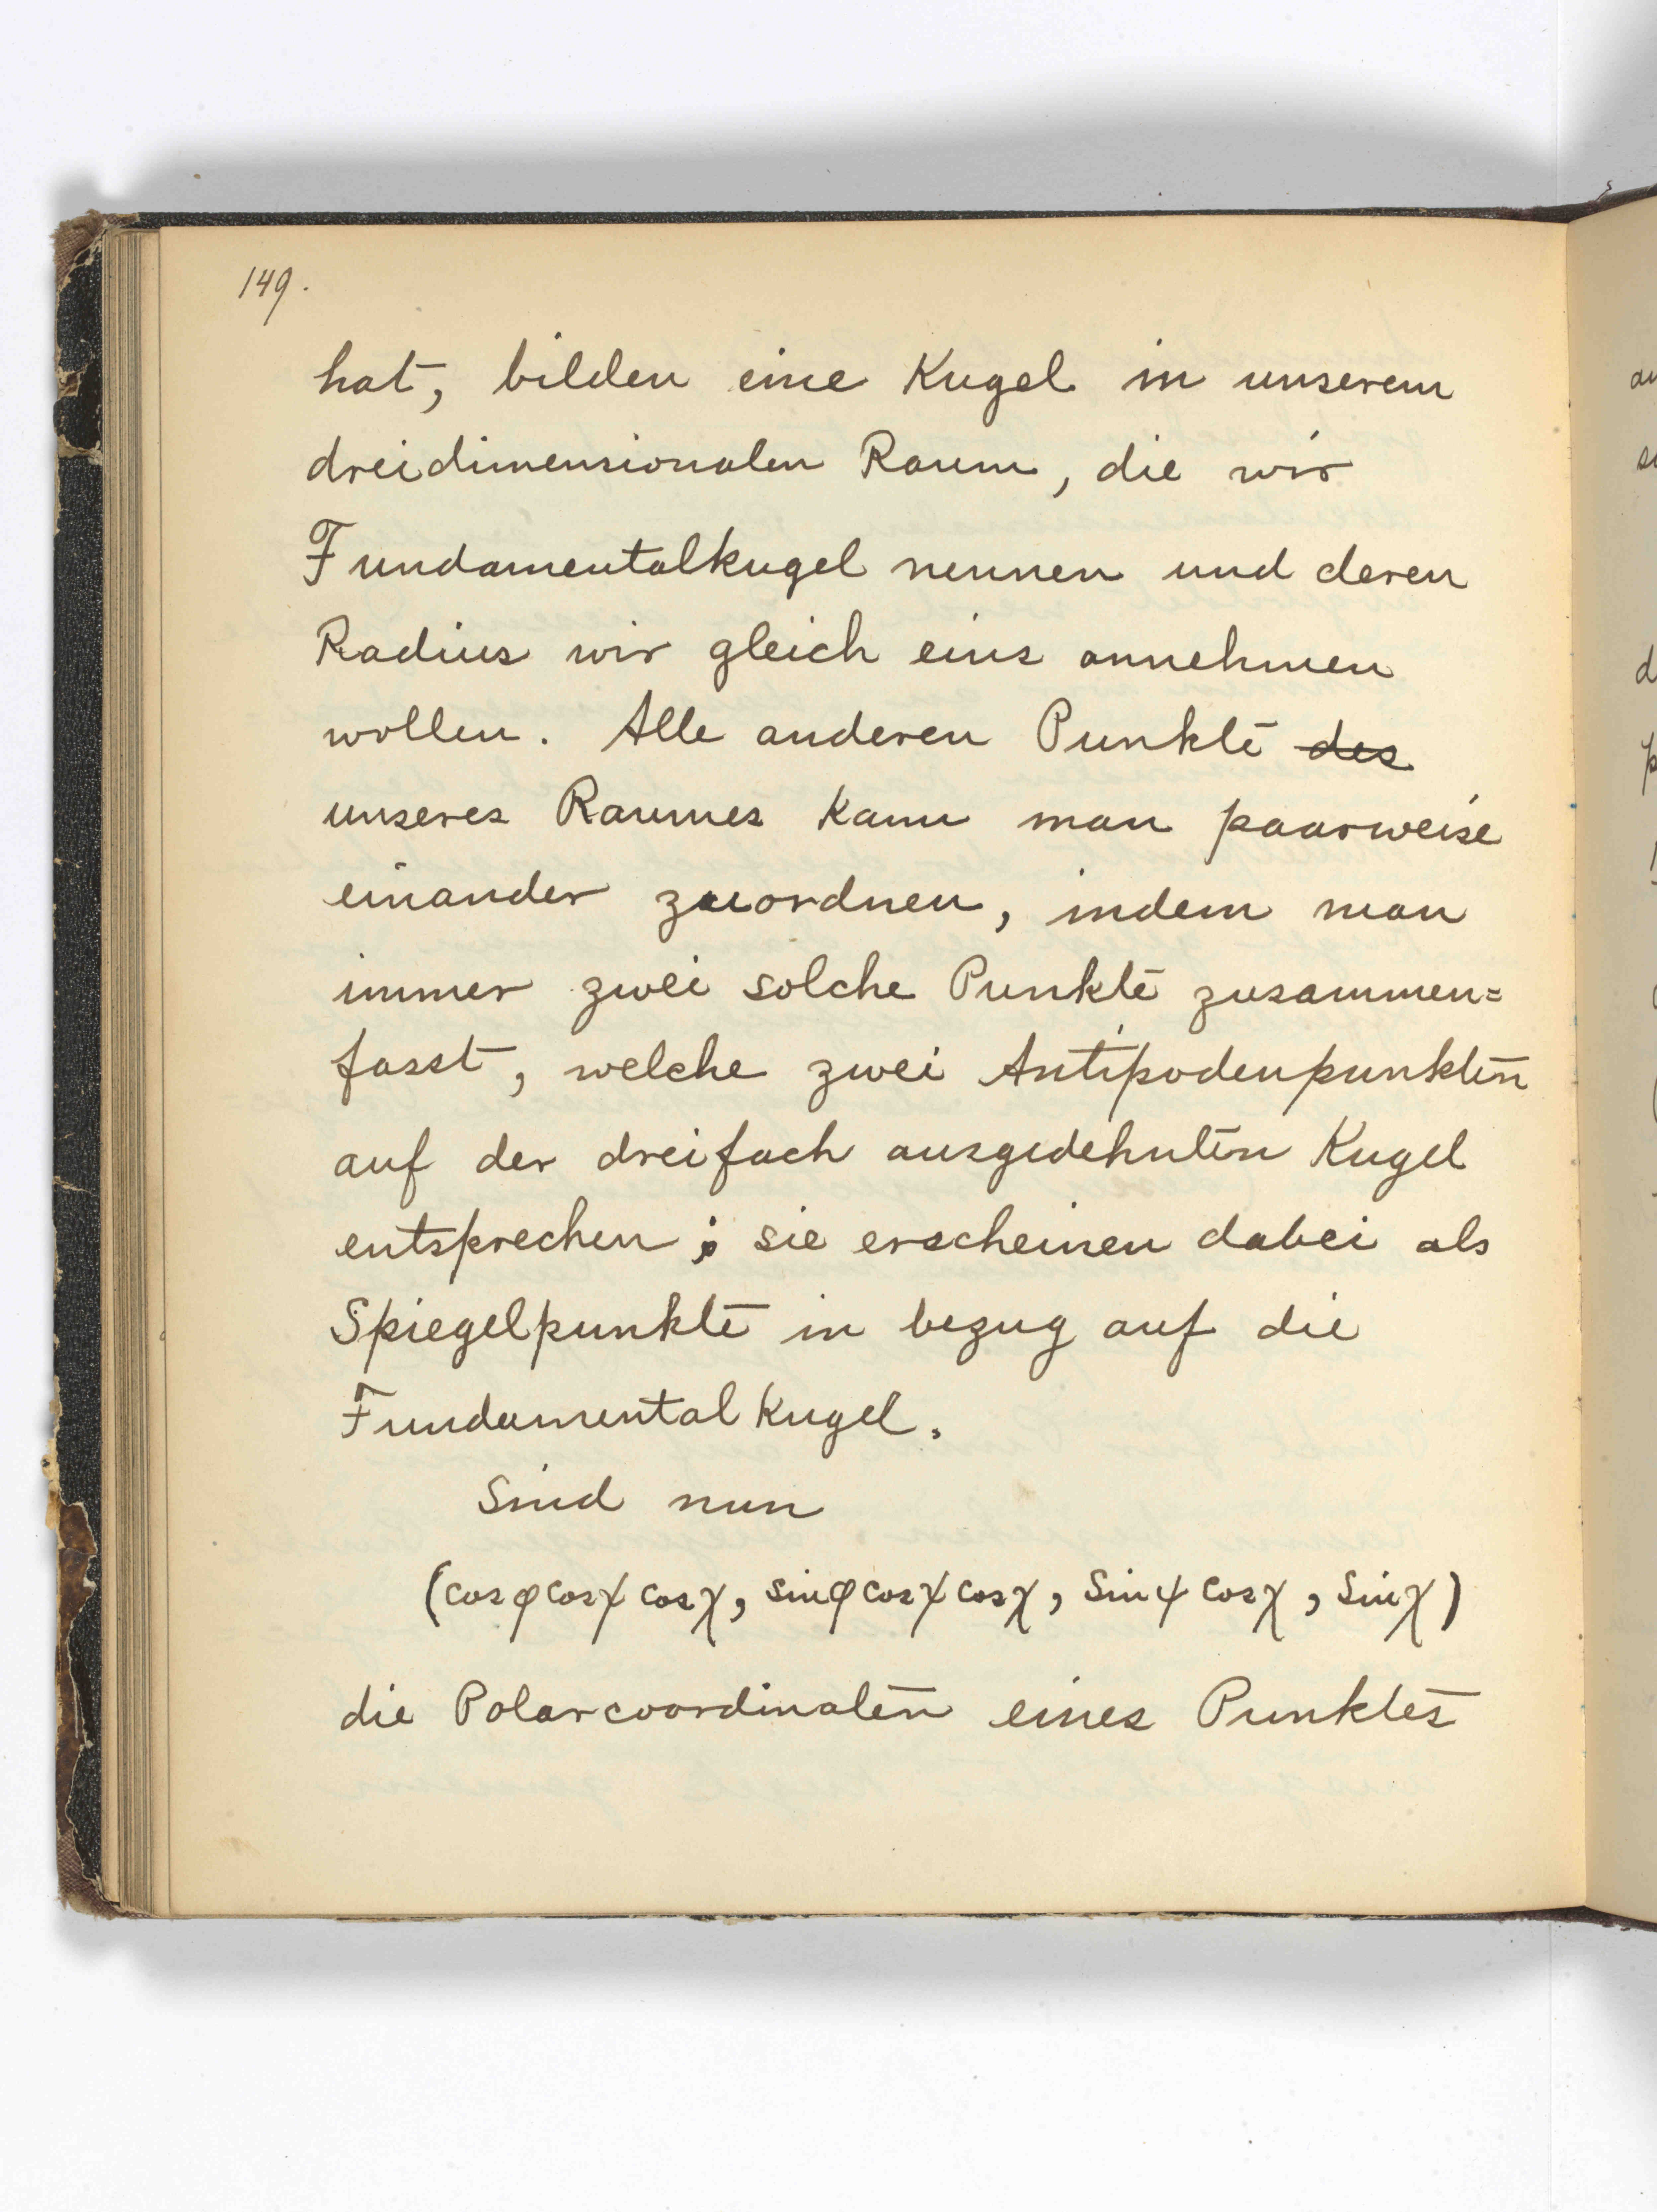 149.
hat, bilden eine Kugel in unserem
dreidimensionalen Raum, die wir
Fundamentalkugel nennen und deren
Radius wir gleich eins annehmen
wollen. Alle anderen Punkte ~~des~~
unseres Raumes kann man paarweise
einander zuordnen, indem man
immer zwei solche Punkte zusammen=
fasst, welche zwei Antipodenpunkten
auf der dreifach ausgedehnten Kugel
entsprechen; sie erscheinen dabei als
Spiegelpunkte in bezug auf die
Fundamentalkugel.
Sind nun
(cos φ cos ψ cos χ, sin φ cos ψ cos χ, sin ψ cos χ, sin χ)
die Polarcoordinaten eines Punktes